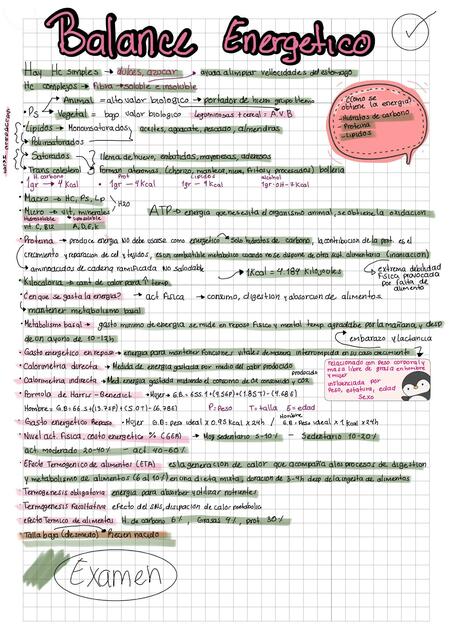 Balance Energetico
Hay Hc simples → dulces, azocar → ayuda alimpiar vellocidades del estomago
Hc complejos → Fibra → soluble e insoluble
Animal = alto valor biologico → portador de hierro grupo Hemo
• Ps
Vegetal = bajo valor biologico leguminosas + cereal = A.V.B
• Lipidos → Monoinsaturados aceites, aguacate, pescado, almendras
Poliinsaturados
Saturados yema de huevo, embutidos, mayonesas, aderesos
Trans colesterol forman ateromas (chorizo, manteca, nuez, fritos y procesados) bolleria
¿Como se obtiene la energia?
- Hidratos de carbono
- Proteina
- Lipidos
H. carbono Prot Lipidos alcohol
1gr → 4 Kcal • 1gr → 4 Kcal 1gr → 9 Kcal 1gr OH = 7 Kcal
Macro → HC, Ps, Lp
H2O
Micro → vit, minerales
hidrosoluble liposoluble
vit C, B12 A, D, E, K
ATP → energia que necesita el organismo animal, se obtiene la oxidacion
• Proteina → produce energia NO debe usarse como energetico → solo hidratos de carbono, la contribucion de la prot. es el
crecimiento y reparacion de cel y tejidos, es un combustible metabolico cuando no se dispone de otra sust. alimentaria (inaniacion)
aminoacidos de cadena ramificada No saludable
→ 1Kcal = 4.184 Kilojoules
extrema debilidad Fisica, provocada por falta de alimento
Kilocaloria → cant de calor para ↑ temp.
¿En que se gasta la energia? → act Fisica → consumo, digestion y absorcion de alimentos.
mantener metabolismo basal
• Metabolismo basal → gasto minimo de energia se mide en reposo fisico y mental temp. agradable por la mañana y desp
de un ayuno de 10-12h
embarazo y lactancia
• Gasto energetico en reposo → energia para mantener Funciones vitales de manera interrumpida en su caso crecimiento
• Calorimetria directa → Medida de energia gastada por medio del calor producido
• Calorimetria indirecta → Med energia gastada midiendo el consumo de O2 consumido y CO2 producido
relacionado con peso corporal y masa libre de grasa en hombre y mujer
influenciada por Peso, estatura, edad
Sexo
• Formola de Harris - Benedict • Mujer = G.B: 655.1 + (9.56P) + (1.85T) - (4.68E)
Hombre = G.B: 66.5 + (13.75P) + (5.0T) - (6.78E) P: Peso T= talla E= edad
• Gasto energetico Reposo • Mujer G.B = peso ideal x 0.95 Kcal x 24h / Hombre G.B = Peso ideal x 1 Kcal x 24h
• Nivel act. Fisica, costo energetico % (GEA) → Muy sedentario 5-10% - Sedentario 10-20%
act moderado 20-40% - act 40-60%
Efecto Termogenico de alimentos (ETA) es la generacion de calor que acompaña a los procesos de digestion
y metabolismo de alimentos (6 al 10%) en una dieta mixta, duracion de 3-4h desp de la ingesta de alimentos
Termogenesis obligatoria energia para absorver y utilizar nutrientes
Termogenesis Facultativa efecto del SNS, disipacion de calor metabolico
efecto Termico de alimentos H. de carbono 6%, Grasas 4%, prot 30%
Talla baja (desmedro) Recien nacido
Examen